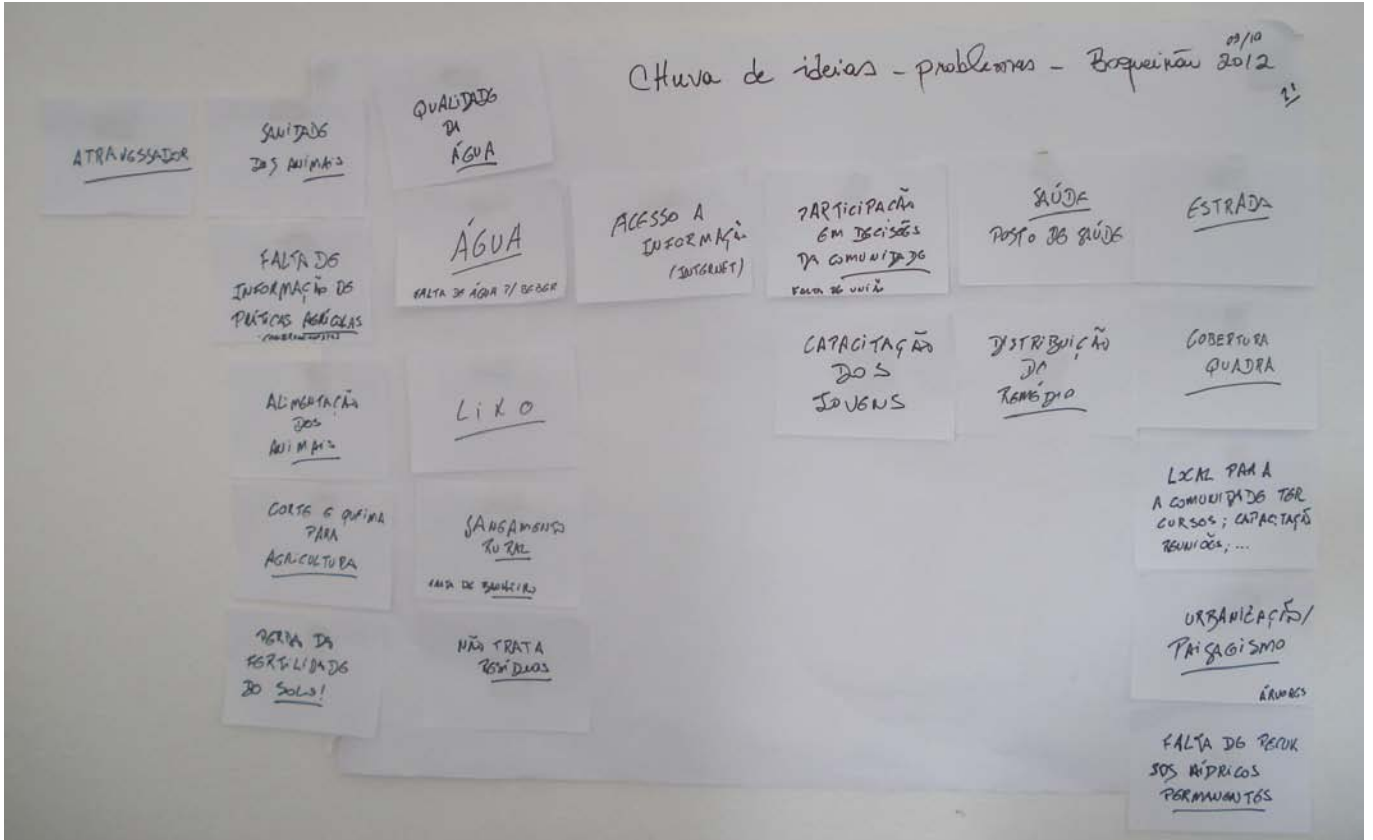 CHuva de ideias - problemas - Boqueirão 09/10 2012
1º
ATRAVESSADOR
SANIDADE
DOS ANIMAIS
FALTA DE
INFORMAÇÃO DE
PRÁTICAS AGRÍCOLAS
ALIMENTAÇÃO
DOS
ANIMAIS
CORTE E QUEIMA
PARA
AGRICULTURA
PERDA DA
FERTILIDADE
DO SOLO!
QUALIDADE
DA
ÁGUA
ÁGUA
FALTA DE ÁGUA P/ BEBER
LIXO
SANEAMENTO
RURAL
FALTA DE BANHEIRO
NÃO TRATA
RESÍDUOS
ACESSO A
INFORMAÇÃO
(INTERNET)
PARTICIPACÃO
EM DECISÕES
DA COMUNIDADE
FALTA DE UNIÃO
CAPACITAÇÃO
DOS
JOVENS
SAÚDE
POSTO DE SAÚDE
DISTRIBUIÇÃO
DE
REMÉDIO
ESTRADA
COBERTURA
QUADRA
LOCAL PARA
A COMUNIDADE TER
CURSOS; CAPACITAÇÃO
REUNIÕES; ...
URBANIZAÇÃO/
PAISAGISMO
ÁRVORES
FALTA DE RECUR
SOS HÍDRICOS
PERMANENTES